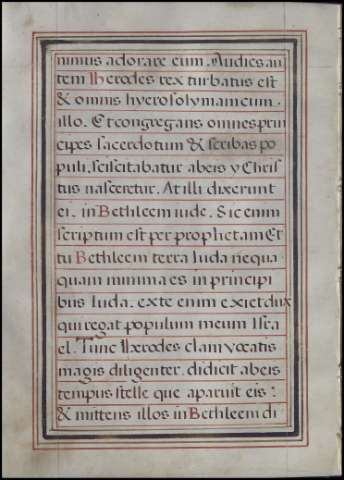 nimus adorare eum. Audies au
tem Herodes rex turbatus est
& omnis hyerosolymam cum
illo. Et congregans omnes prin
cipes sacerdotum & scribas po
puli, sciscitabatur abeis y Chris
tus nasceretur. At illi dixerunt
ei. in Bethleem iude. Sic enim
scriptum est per prophetam Et
tu Bethleem terra Iuda nequa
quam minima es in principi
bus Iuda. exte enim exiet dux
qui regat populum meum Isra
el. Tunc Herodes clam vocatis
magis diligenter. didicit abeis
tempus stelle que aparuit eis:
& mittens illos in Bethleem di